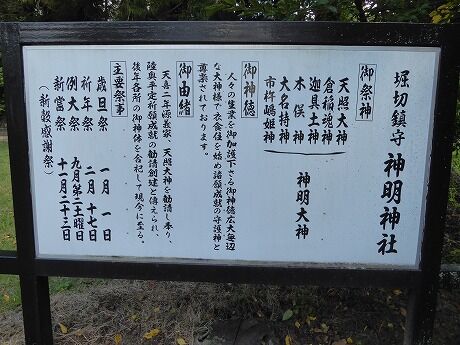 堀切鎮守 神明神社
御祭神
天照大神
倉稲魂神
迦具土神
木俣神
大名持神
市杵嶋姫神
神明大神
御神徳
人々の生業を御加護下さる御神徳広大無辺
な大神様で衣食住を始め諸願成就の守護神と
尊崇されております。
御由緒
天喜二年源義家、天照大神を勧請し奉り、
陸奥平定祈願成就の勧請創建と傳えられ、
後年各所の御神体を合祀して現今に至る。
主要祭事
歳旦祭 一月一日
祈年祭 二月十七日
例大祭 九月第二土曜日
新嘗祭 十一月二十三日
(新穀感謝祭)